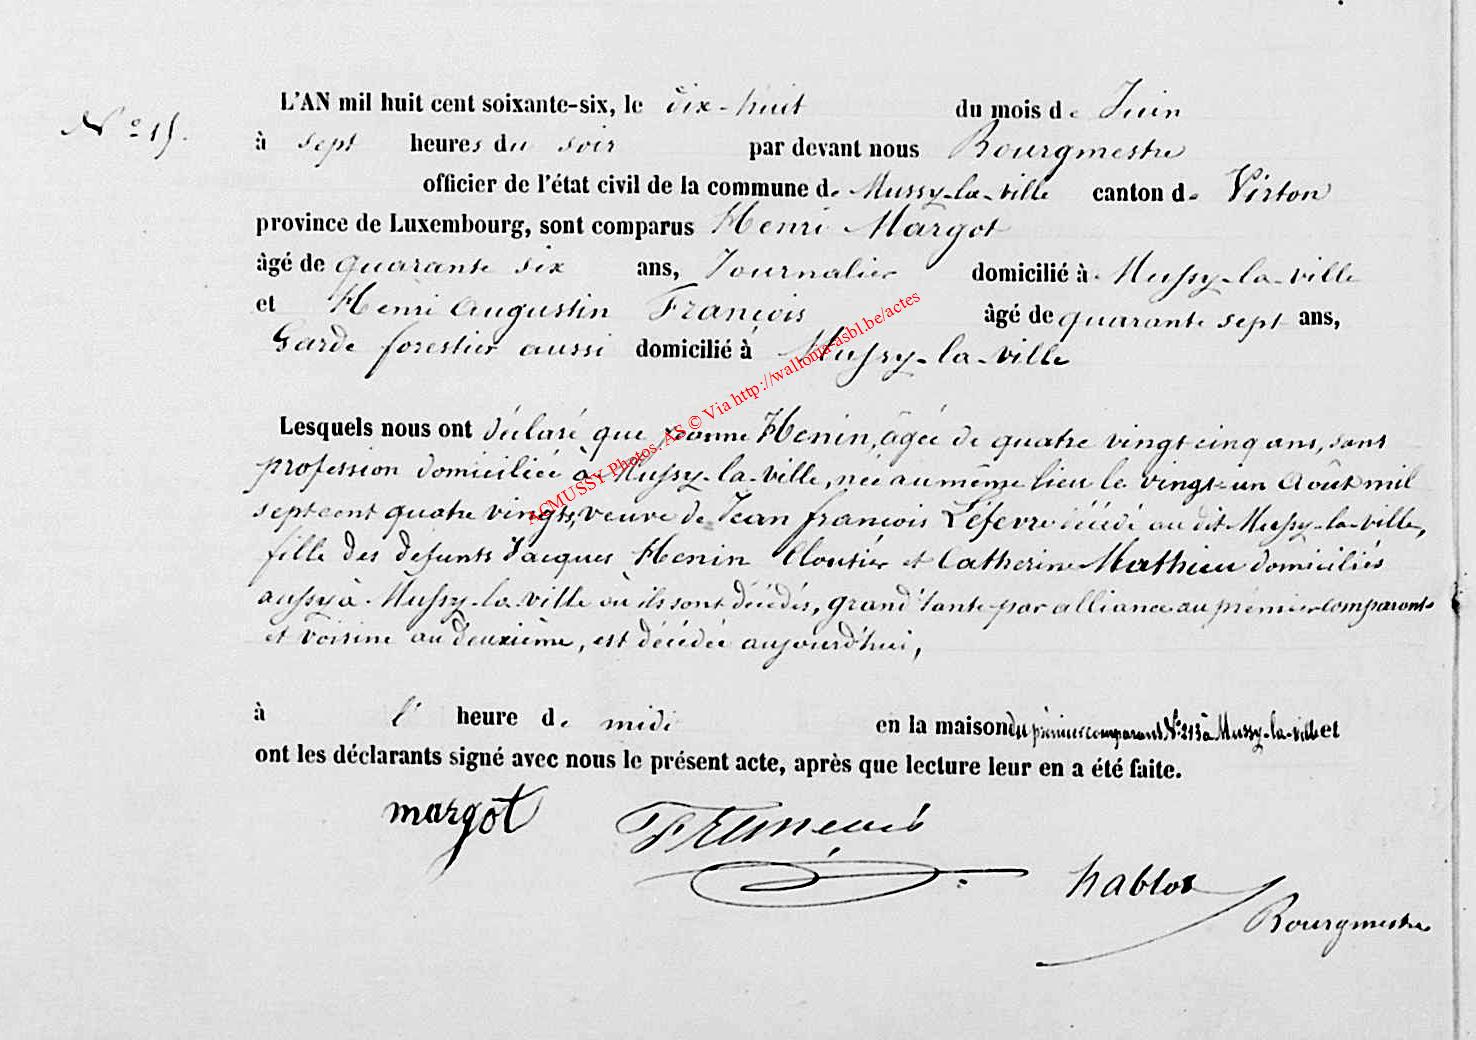 N° 15.
L'AN mil huit cent soixante-six, le dix-huit du mois de Juin
à sept heures du soir par devant nous Bourgmestre
officier de l'état civil de la commune de Mussy-la-ville canton de Virton
province de Luxembourg, sont comparus Henri Margot
âgé de quarante six ans, Journalier domicilié à Mussy-la-ville
et Henri Augustin François âgé de quarante sept ans,
Garde forestier aussi domicilié à Mussy-la-ville
Lesquels nous ont déclaré que Jeanne Henin, âgée de quatre vingt cinq ans, sans
profession domiciliée à Mussy-la-ville, née au même lieu le vingt-un Août mil
sept cent quatre vingts, veuve de Jean françois Léfevre décédé au dit Mussy-la-ville,
fille des défunts Jacques Henin Cloutier et Catherine Mathieu domiciliés
aussy à Mussy-la-ville où ils sont décédés, grand'tante par alliance au prémier comparant
et voisine au deuxième, est décédée aujourd'hui,
à l' heure de midi en la maison du prémier comparant, N° 213 à Mussy-la-ville et
ont les déclarants signé avec nous le présent acte, après que lecture leur en a été faite.
margot
François
hablot
Bourgmestre
ACMUSSY Photos. AS © Via http://wallonia-asbl.be/actes